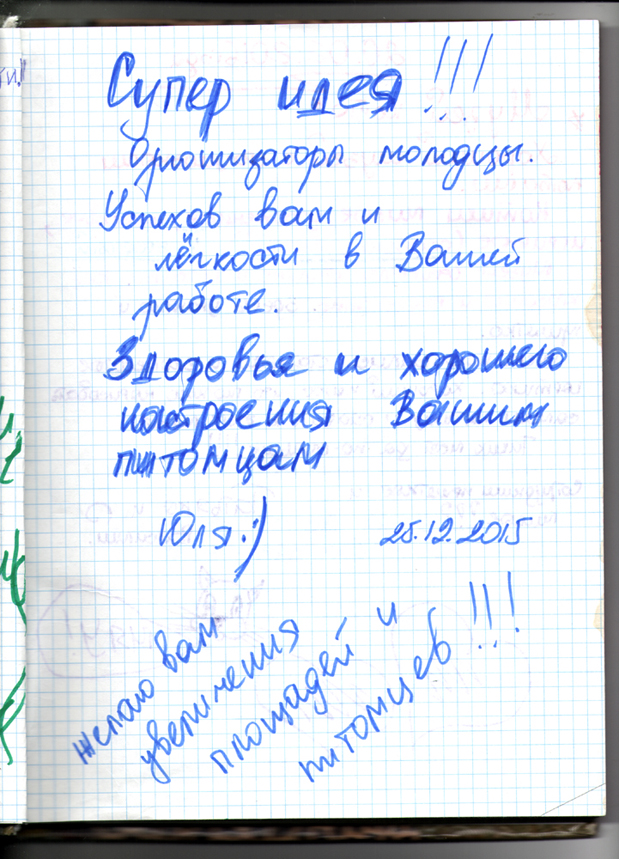 Супер идея!!!
Организаторы молодцы.
Успехов вам и
лёгкости в Вашей
работе.
Здоровья и хорошего
настроения Вашим
питомцам
Юля:)
25.12.2015
желаю вам
увеличения
площадей и
питомцев!!!